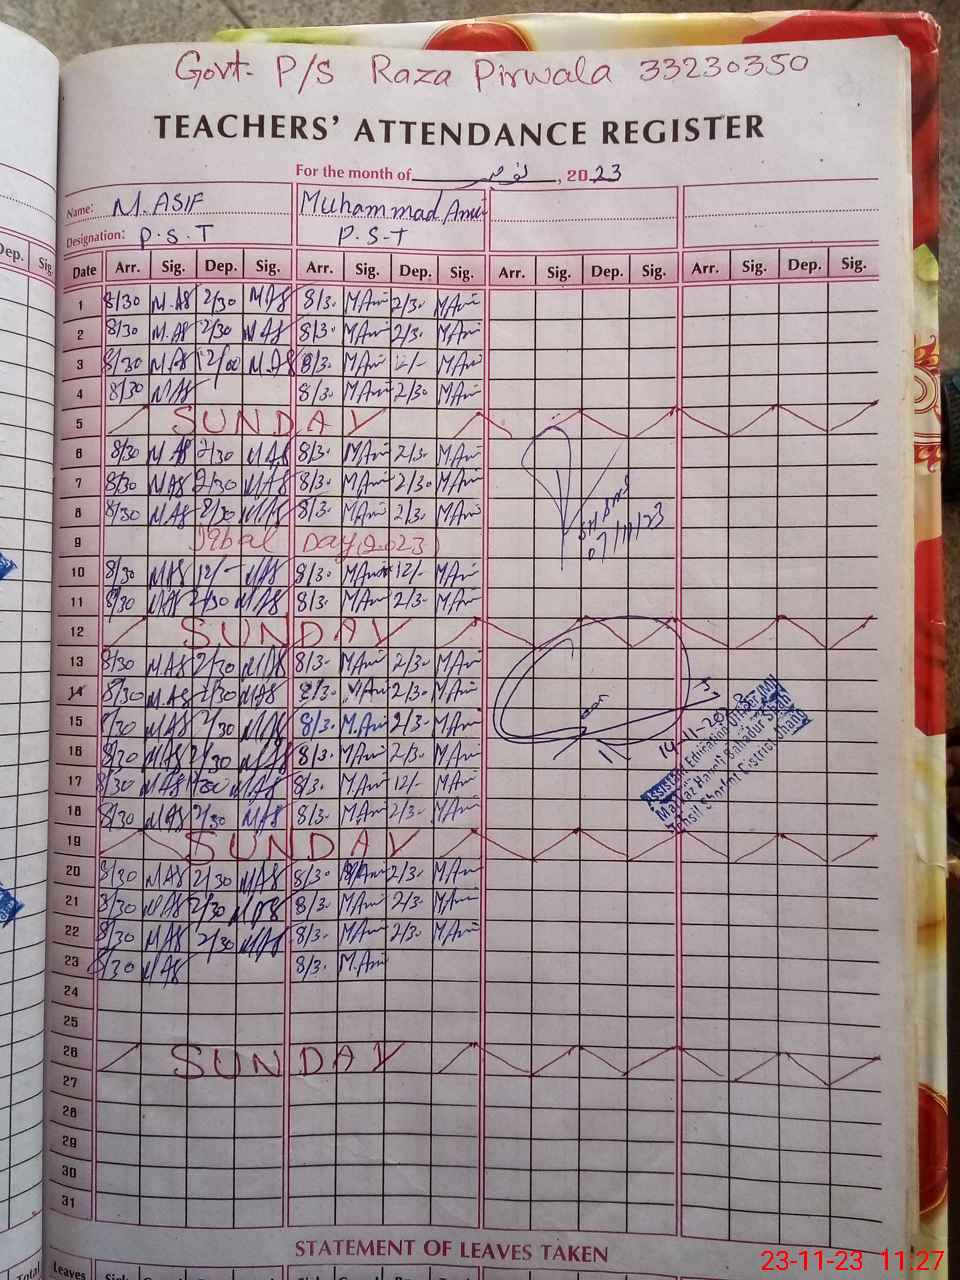 Govt. P/S Raza Pirwala 33230350
TEACHERS' ATTENDANCE REGISTER
For the month of نومبر, 2023
Name: M. ASIF Muhammad Amin
Designation: P.S.T P.S.T
Date Arr. Sig. Dep. Sig. Arr. Sig. Dep. Sig. Arr. Sig. Dep. Sig. Arr. Sig. Dep. Sig.
1 8/30 M.AS 2/30 MAS 8/3. MAmi 2/3. MAmi
2 8/30 M.AS 2/30 MAS 8/3. MAmi 2/3. MAmi
3 8/30 M.AS 12/00 M.AS 8/3. MAmi 12/- MAmi
4 8/30 MAS 8/3. MAmi 2/30 MAmi
5 SUNDAY
6 8/30 MAS 2/30 MAS 8/3. MAmi 2/3. MAmi
7 8/30 MAS 2/30 MAS 8/3. MAmi 2/30 MAmi
8 8/30 MAS 8/30 MAS 8/3. MAmi 2/3. MAmi
07/11/23
9 Iqbal Day 2023
10 8/30 MAS 12/- MAS 8/3. MAmi 12/- MAmi
11 8/30 MAS 2/30 MAS 8/3. MAmi 2/3. MAmi
12 SUNDAY
13 8/30 MAS 2/30 MAS 8/3. MAmi 2/3. MAmi
14 8/30 M.AS 2/30 MAS 8/3. MAmi 2/30 MAmi
15 8/30 MAS 2/30 MAS 8/3. M.Ami 2/3. MAmi
16 8/30 MAS 2/30 MAS 8/3. MAmi 2/3. MAmi
17 8/30 MAS MAS 8/3. MAmi 12/- MAmi
18 8/30 MAS 2/30 MAS 8/3. MAmi 2/3. MAmi
14-11-2023
Assistant Education Officer (M)
Markaz Haveli Bahadur Shah
Tehsil Shorkot District Jhang
19 SUNDAY
20 8/30 MAS 2/30 MAS 8/3. MAmi 2/3. MAmi
21 8/30 MAS 2/30 MAS 8/3. MAmi 2/3. MAmi
22 8/30 MAS 2/30 MAS 8/3. MAmi 2/30 MAmi
23 8/30 MAS 8/3. M.Ami
24
25
26 SUNDAY
27
28
29
30
31
STATEMENT OF LEAVES TAKEN
Leaves
Total
23-11-23 11:27